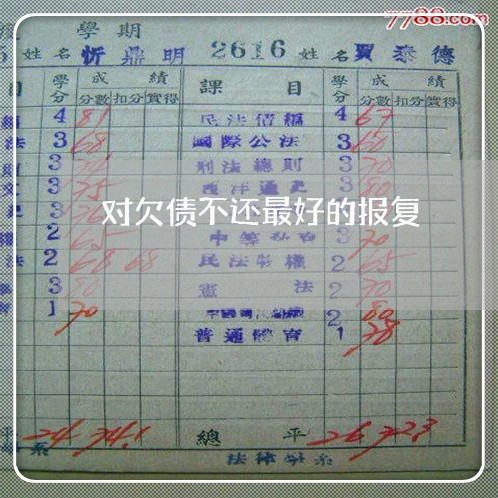 7788.com
學期
姓名 忻鼎明 2616 姓名 賈泰德
目 學分 成績 課目 學分 成績
分數 扣分 實得 分數 扣分 實得
4 81 民法債編 4 67
法 3 68 國際公法 3 60
3 刑法總則 3 70
3 75 西洋通史 3 80
對欠债不还最好的报复
2 65 3 70
法 2 68 68 民法物權 2 65
3 80 憲法 2 70
1 70 2 80
普通體育 1 78
平 24 74.1 總平 26 72.3
系 法律學系